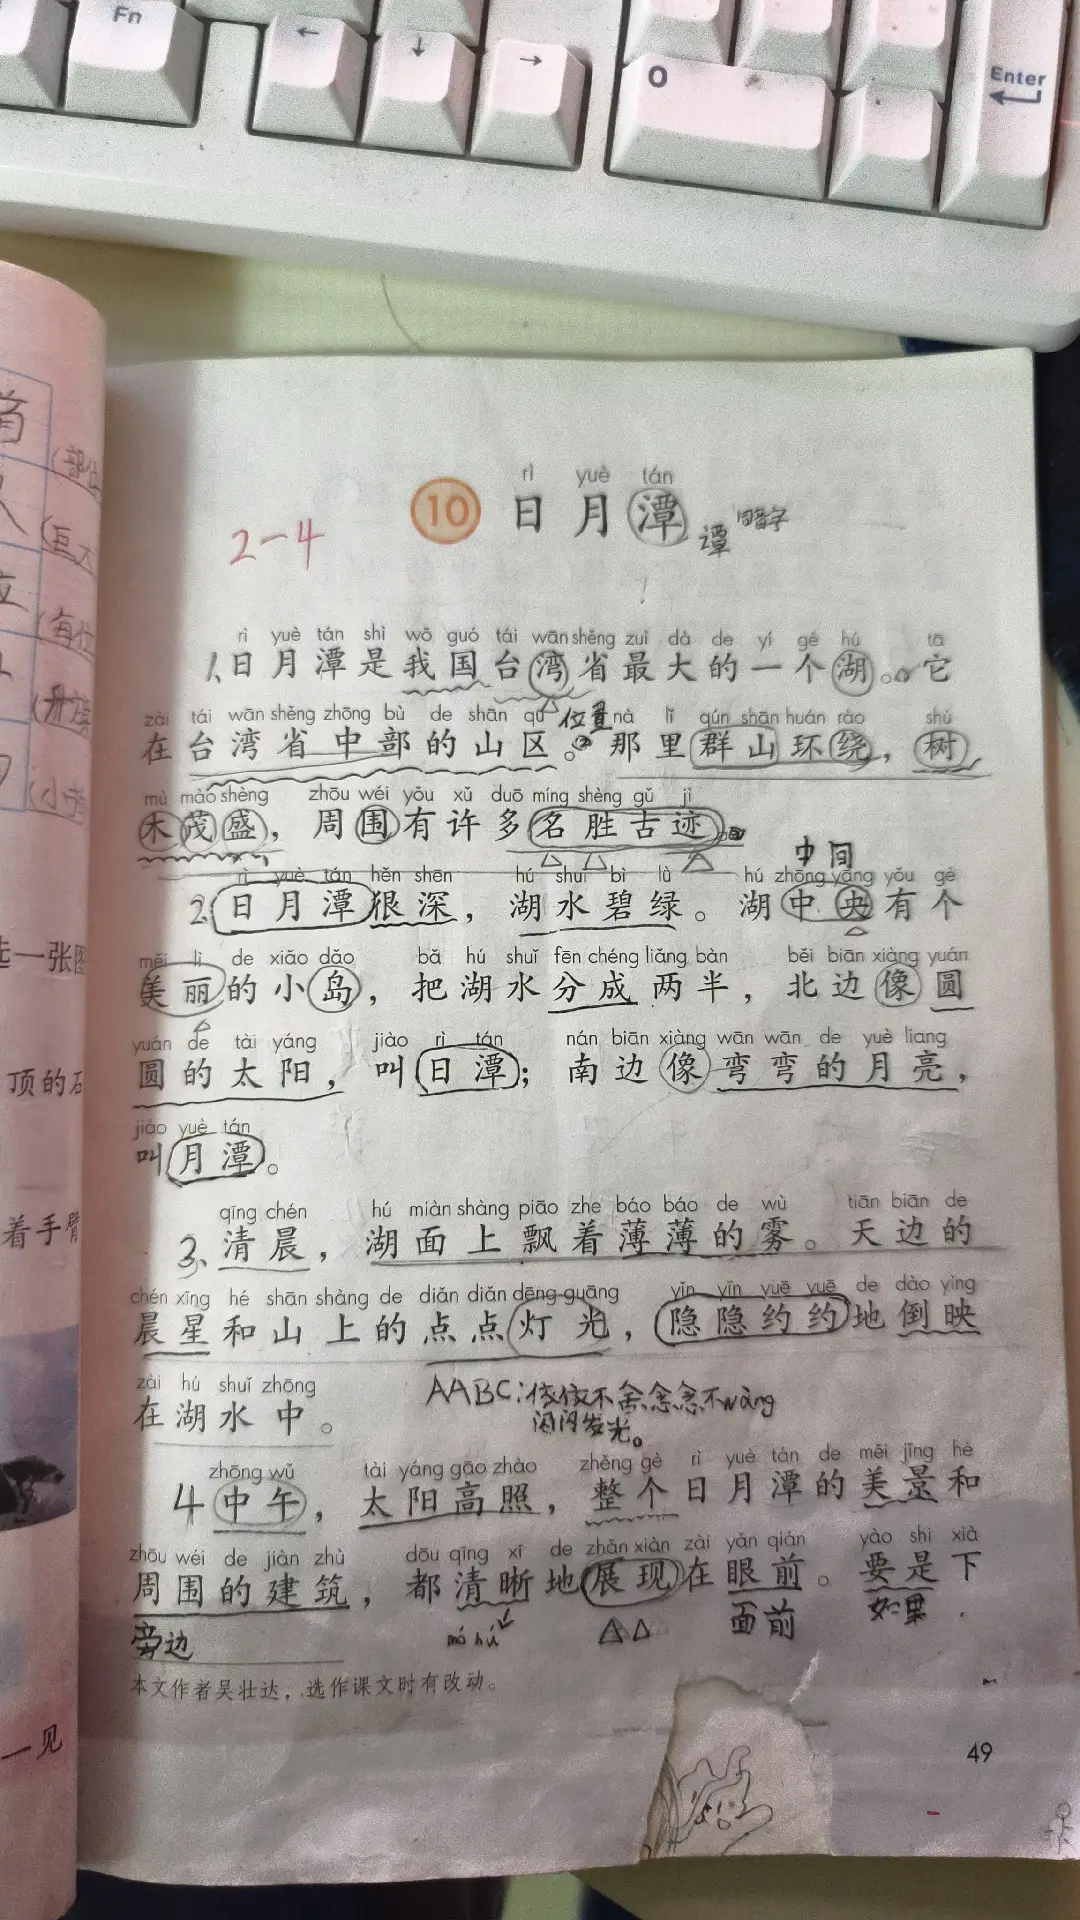 Fn
← ↓ → 0 Enter
首
(部位
人
(巨人
位
(每位
(小书
选一张图
顶的石
着手臂
一见
rì yuè tán
10 日月潭
谭 同音字
2-4
rì yuè tán shì wǒ guó tái wān shěng zuì dà de yí gè hú tā
1、日月潭是我国台湾省最大的一个湖。它
zài tái wān shěng zhōng bù de shān qū 位置 nà lǐ qún shān huán rào shù
在台湾省中部的山区。② 那里群山环绕，树
mù mào shèng zhōu wéi yǒu xǔ duō míng shèng gǔ jì
木茂盛，周围有许多名胜古迹。
中间
rì yuè tán hěn shēn hú shuǐ bì lǜ hú zhōng yāng yǒu gè
2.日月潭很深，湖水碧绿。湖中央有个
měi lì de xiǎo dǎo bǎ hú shuǐ fēn chéng liǎng bàn běi biān xiàng yuán
美丽的小岛，把湖水分成两半，北边像圆
yuán de tài yáng jiào rì tán nán biān xiàng wān wān de yuè liang
圆的太阳，叫日潭；南边像弯弯的月亮，
jiào yuè tán
叫月潭。
qīng chén hú miàn shàng piāo zhe báo báo de wù tiān biān de
3、清晨，湖面上飘着薄薄的雾。天边的
chén xīng hé shān shàng de diǎn diǎn dēng guāng yǐn yǐn yuē yuē de dào yìng
晨星和山上的点点灯光，隐隐约约地倒映
zài hú shuǐ zhōng
在湖水中。
AABC：依依不舍念念不wàng
闪闪发光。
zhōng wǔ tài yáng gāo zhào zhěng gè rì yuè tán de měi jǐng hé
4 中午，太阳高照，整个日月潭的美景和
zhōu wéi de jiàn zhù dōu qīng xī de zhǎn xiàn zài yǎn qián yào shi xià
周围的建筑，都清晰地展现在眼前。要是下
旁边 mó hú 面前 如果
本文作者吴壮达，选作课文时有改动。
49